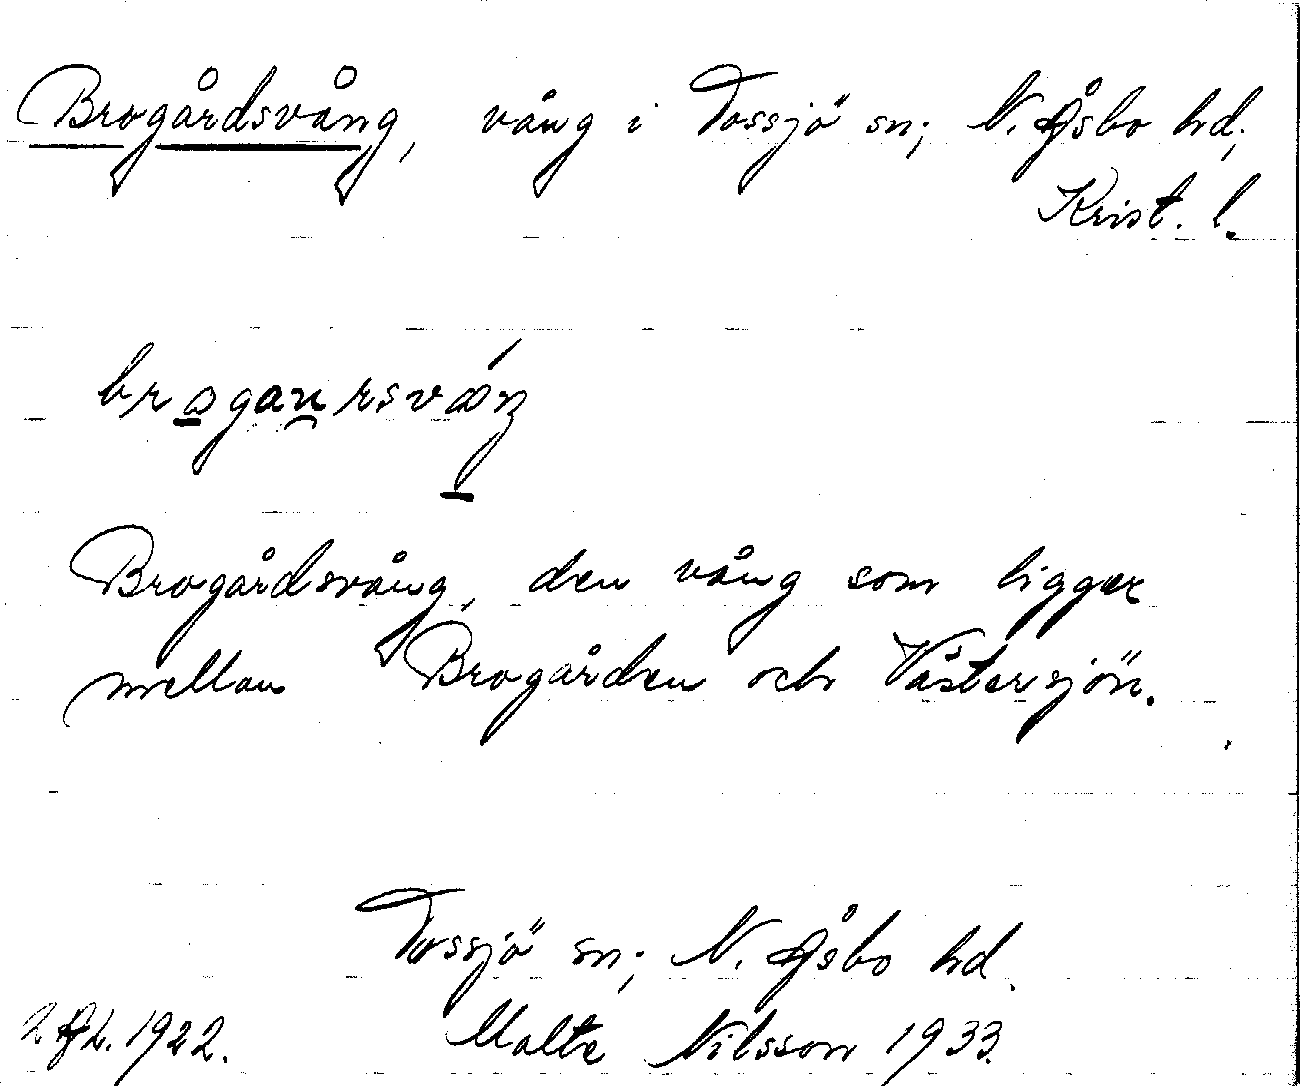 Brogårdsvång, vång i Tossjö sn; N. Åsbo hd;
Krist. l.
Brogårdsvång, den vång som ligger
mellan Brogården och Västersjön.
Tossjö sn; N. Åsbo hd.
1922. Malte Nilsson 1933.